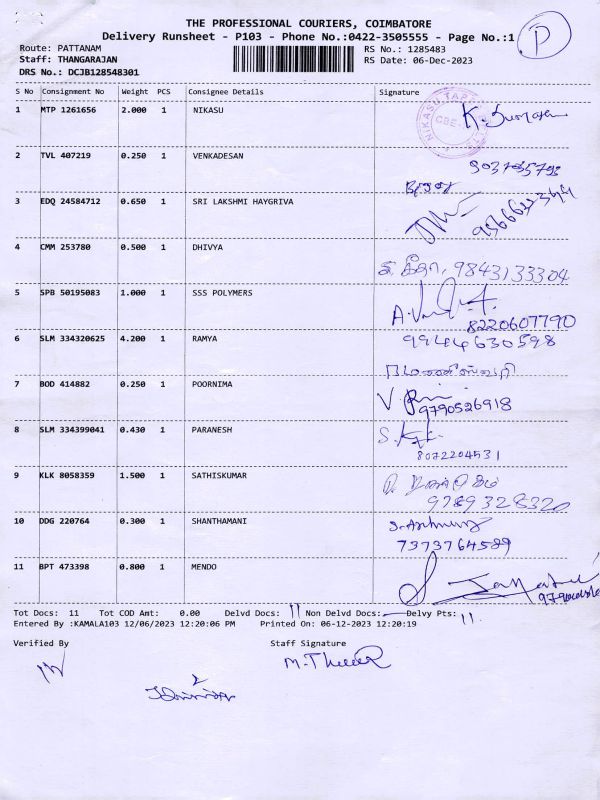 THE PROFESSIONAL COURIERS, COIMBATORE
Delivery Runsheet - P103 - Phone No.:0422-3505555 - Page No.:1
P
Route: PATTANAM
RS No.: 1285483
Staff: THANGARAJAN
RS Date: 06-Dec-2023
DRS No.: DCJB128548301
S No Consignment No Weight PCS Consignee Details Signature
1 MTP 1261656 2.000 1 NIKASU K.
2 TVL 407219 0.250 1 VENKADESAN
3 EDQ 24584712 0.650 1 SRI LAKSHMI HAYGRIVA
4 CMM 253780 0.500 1 DHIVYA
9843133304
5 SPB 50195083 1.000 1 SSS POLYMERS
8220607790
6 SLM 334320625 4.200 1 RAMYA 9944630598
7 BOD 414882 0.250 1 POORNIMA
9790526918
8 SLM 334399041 0.430 1 PARANESH
8072204531
9 KLK 8058359 1.500 1 SATHISKUMAR
9789328320
10 DDG 220764 0.300 1 SHANTHAMANI
7373764589
11 BPT 473398 0.800 1 MENDO
Tot Docs: 11 Tot COD Amt: 0.00 Delvd Docs: 11 Non Delvd Docs: Delvy Pts: 11.
Entered By :KAMALA103 12/06/2023 12:20:06 PM Printed On: 06-12-2023 12:20:19
Verified By Staff Signature